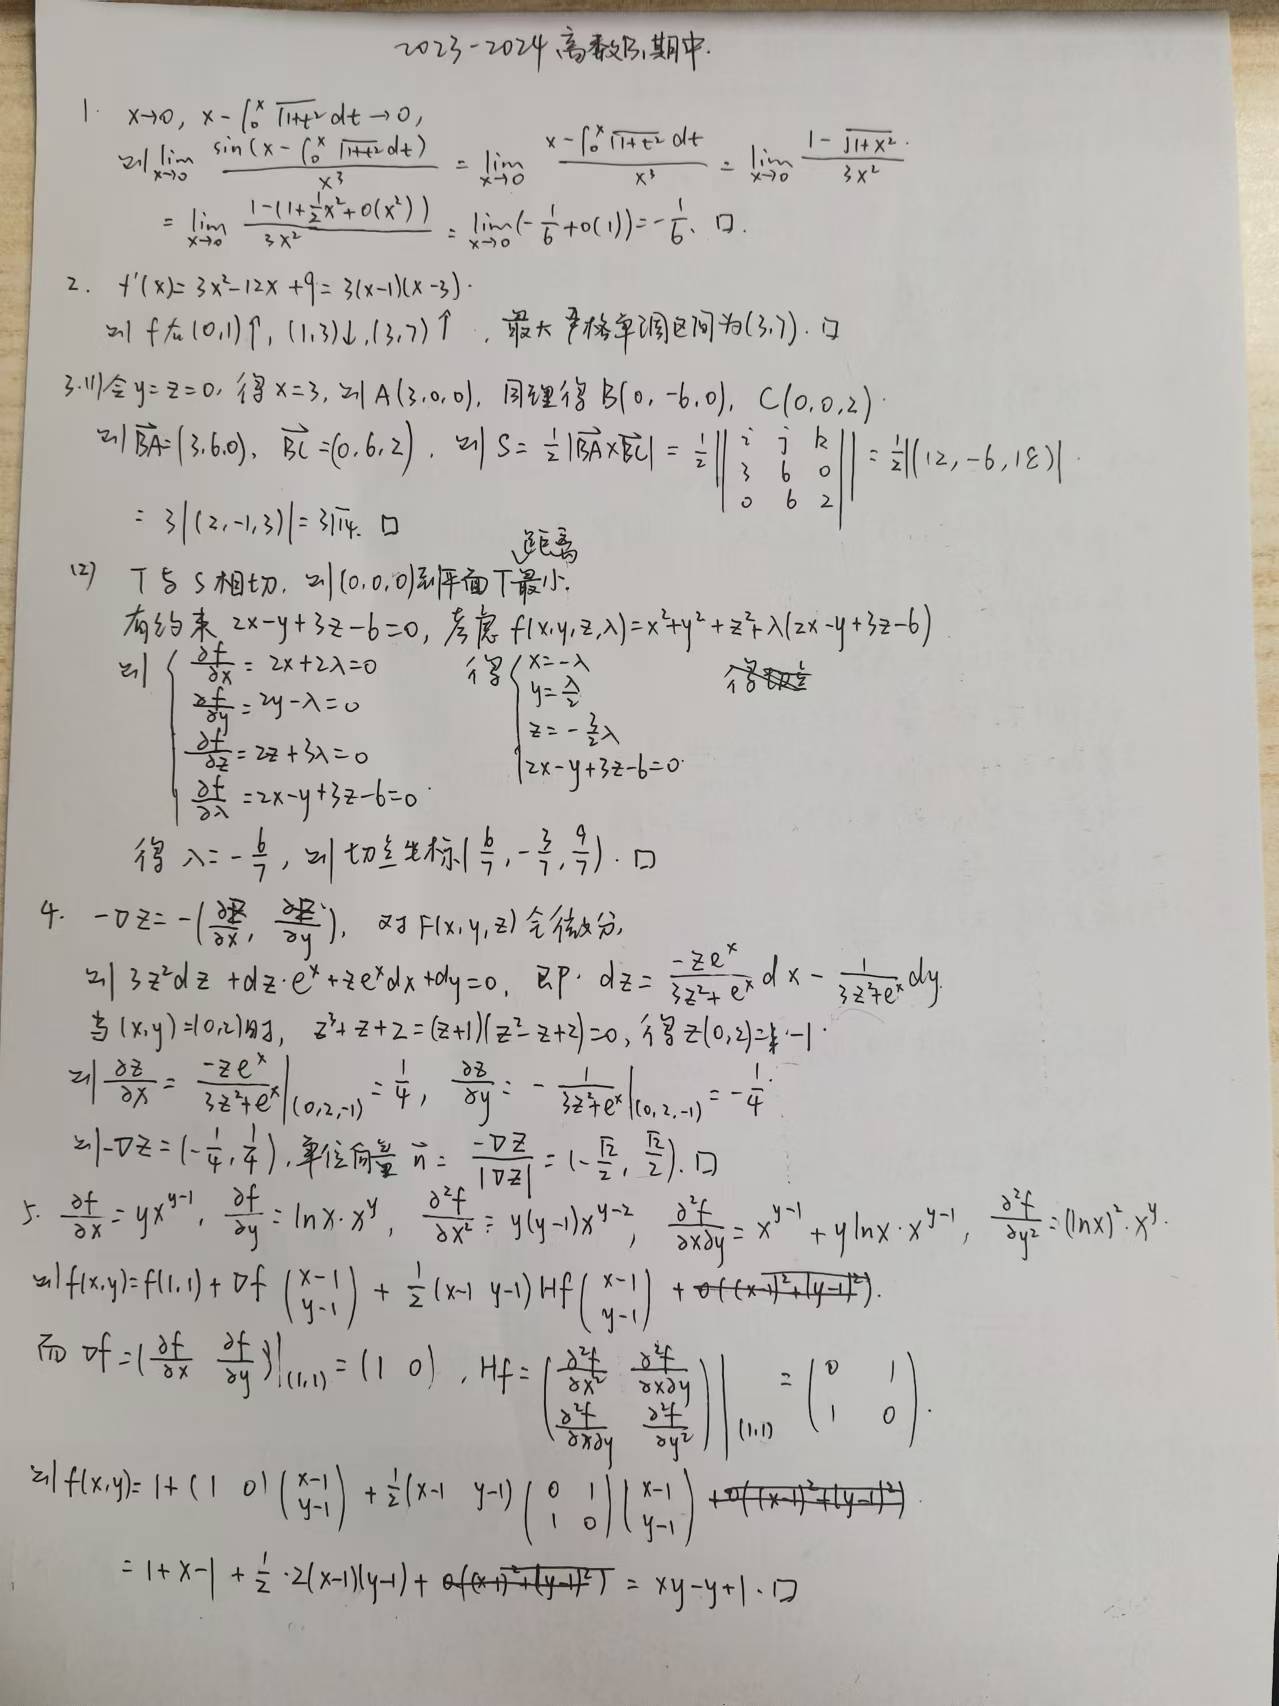 2023-2024 高数B1期中.
1. x→0, x-∫₀ˣ √1+t² dt→0,
则 lim x→0 sin(x-∫₀ˣ √1+t² dt)/x³ = lim x→0 (x-∫₀ˣ √1+t² dt)/x³ = lim x→0 (1-√1+x²)/3x².
= lim x→0 (1-(1+½x²+o(x²)))/3x² = lim x→0 (-1/6+o(1))=-1/6. □.
2. f'(x)=3x²-12x+9=3(x-1)(x-3).
则 f在(0,1)↑, (1,3)↓,(3,7)↑, 最大严格单调区间为(3,7). □
3.(1)令y=z=0, 得x=3, 则A(3,0,0), 同理得B(0,-6,0), C(0,0,2).
则 BA=(3,6,0), BC=(0,6,2), 则 S=½|BA×BC|=½||i j k; 3 6 0; 0 6 2||=½|(12,-6,18)|.
=3|(2,-1,3)|=3√14. □
(2) T与S相切, 则(0,0,0)到平面T距离最小.
有约束 2x-y+3z-6=0, 考虑 f(x,y,z,λ)=x²+y²+z²+λ(2x-y+3z-6)
则 { ∂f/∂x=2x+2λ=0 得 { x=-λ
∂f/∂y=2y-λ=0 y=λ/2
∂f/∂z=2z+3λ=0 z=-3/2λ
∂f/∂λ=2x-y+3z-6=0. 2x-y+3z-6=0.
得 λ=-6/7, 则切点坐标(6/7,-3/7,9/7). □
4. -∇z=-(∂z/∂x, ∂z/∂y), 对F(x,y,z)全微分,
则 3z²dz+dz·eˣ+zeˣdx+dy=0, 即 dz=-zeˣ/(3z²+eˣ) dx - 1/(3z²+eˣ) dy.
当(x,y)=(0,2)时, z³+z+2=(z+1)(z²-z+2)=0, 得z(0,2)=-1.
则 ∂z/∂x=-zeˣ/(3z²+eˣ)|(0,2,-1)=1/4, ∂z/∂y=-1/(3z²+eˣ)|(0,2,-1)=-1/4.
则-∇z=(-1/4,1/4), 单位向量 n=-∇z/|∇z|=(-√2/2,√2/2). □
5. ∂f/∂x=yx^(y-1), ∂f/∂y=lnx·x^y, ∂²f/∂x²=y(y-1)x^(y-2), ∂²f/∂x∂y=x^(y-1)+ylnx·x^(y-1), ∂²f/∂y²=(lnx)²·x^y.
则f(x,y)=f(1,1)+∇f(x-1; y-1)+½(x-1 y-1)Hf(x-1; y-1)+o((x-1)²+(y-1)²).
而 ∇f=(∂f/∂x ∂f/∂y)|(1,1)=(1 0), Hf=(∂²f/∂x² ∂²f/∂x∂y; ∂²f/∂x∂y ∂²f/∂y²)|(1,1)=(0 1; 1 0).
则f(x,y)=1+(1 0)(x-1; y-1)+½(x-1 y-1)(0 1; 1 0)(x-1; y-1)+o((x-1)²+(y-1)²).
=1+x-1+½·2(x-1)(y-1)+o((x-1)²+(y-1)²)=xy-y+1. □